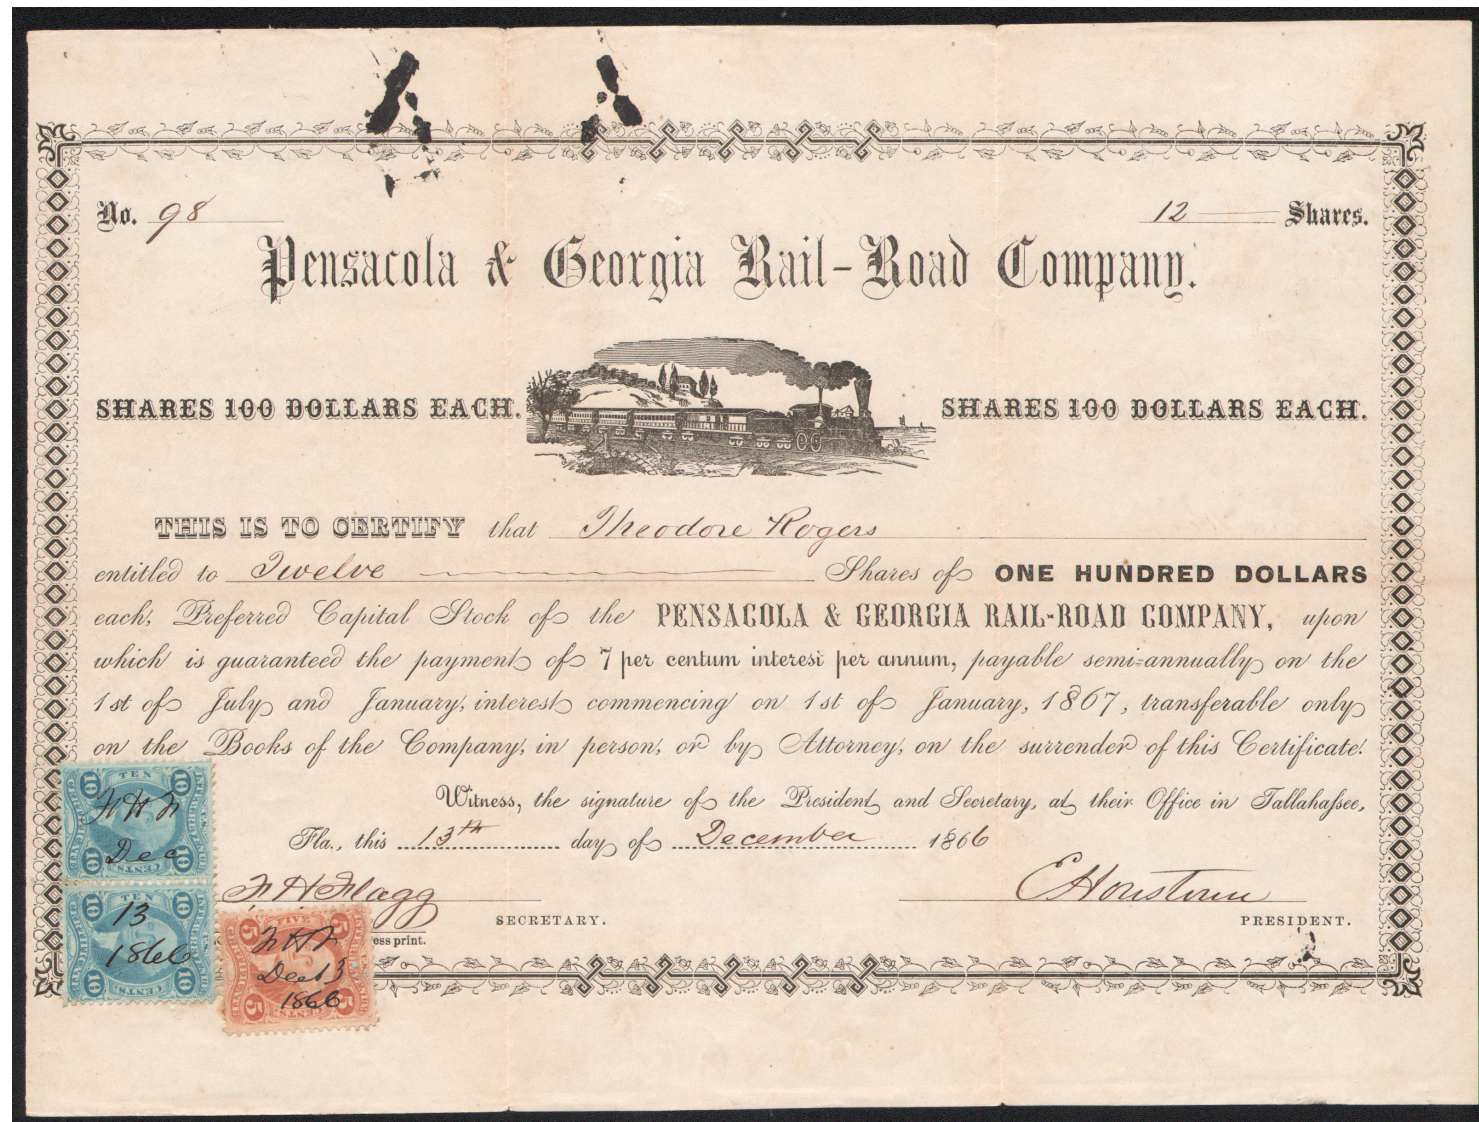 No. 98 12 Shares.
Pensacola & Georgia Rail-Road Company.
SHARES 100 DOLLARS EACH. SHARES 100 DOLLARS EACH.
THIS IS TO CERTIFY that Theodore Rogers
entitled to Twelve Shares of ONE HUNDRED DOLLARS
each, Preferred Capital Stock of the PENSACOLA & GEORGIA RAIL-ROAD COMPANY, upon
which is guaranteed the payment of 7 per centum interest per annum, payable semi-annually on the
1st of July and January, interest commencing on 1st of January, 1867, transferable only
on the Books of the Company, in person, or by Attorney, on the surrender of this Certificate.
Witness, the signature of the President and Secretary, at their Office in Tallahassee,
Fla., this 13th day of December 1866
F H Flagg SECRETARY.
E Houstoun PRESIDENT.
ess print.
10 TEN 10
U.S. INTER. REVENUE
CERTIFICATE
F H F
Dec
10 CENTS 10
10 TEN 10
U.S. INTER. REVENUE
CERTIFICATE
13
1866
10 CENTS 10
5 FIVE 5
U.S. INTER. REVENUE
CERTIFICATE
F H F
Dec 13
1866
5 CENTS 5